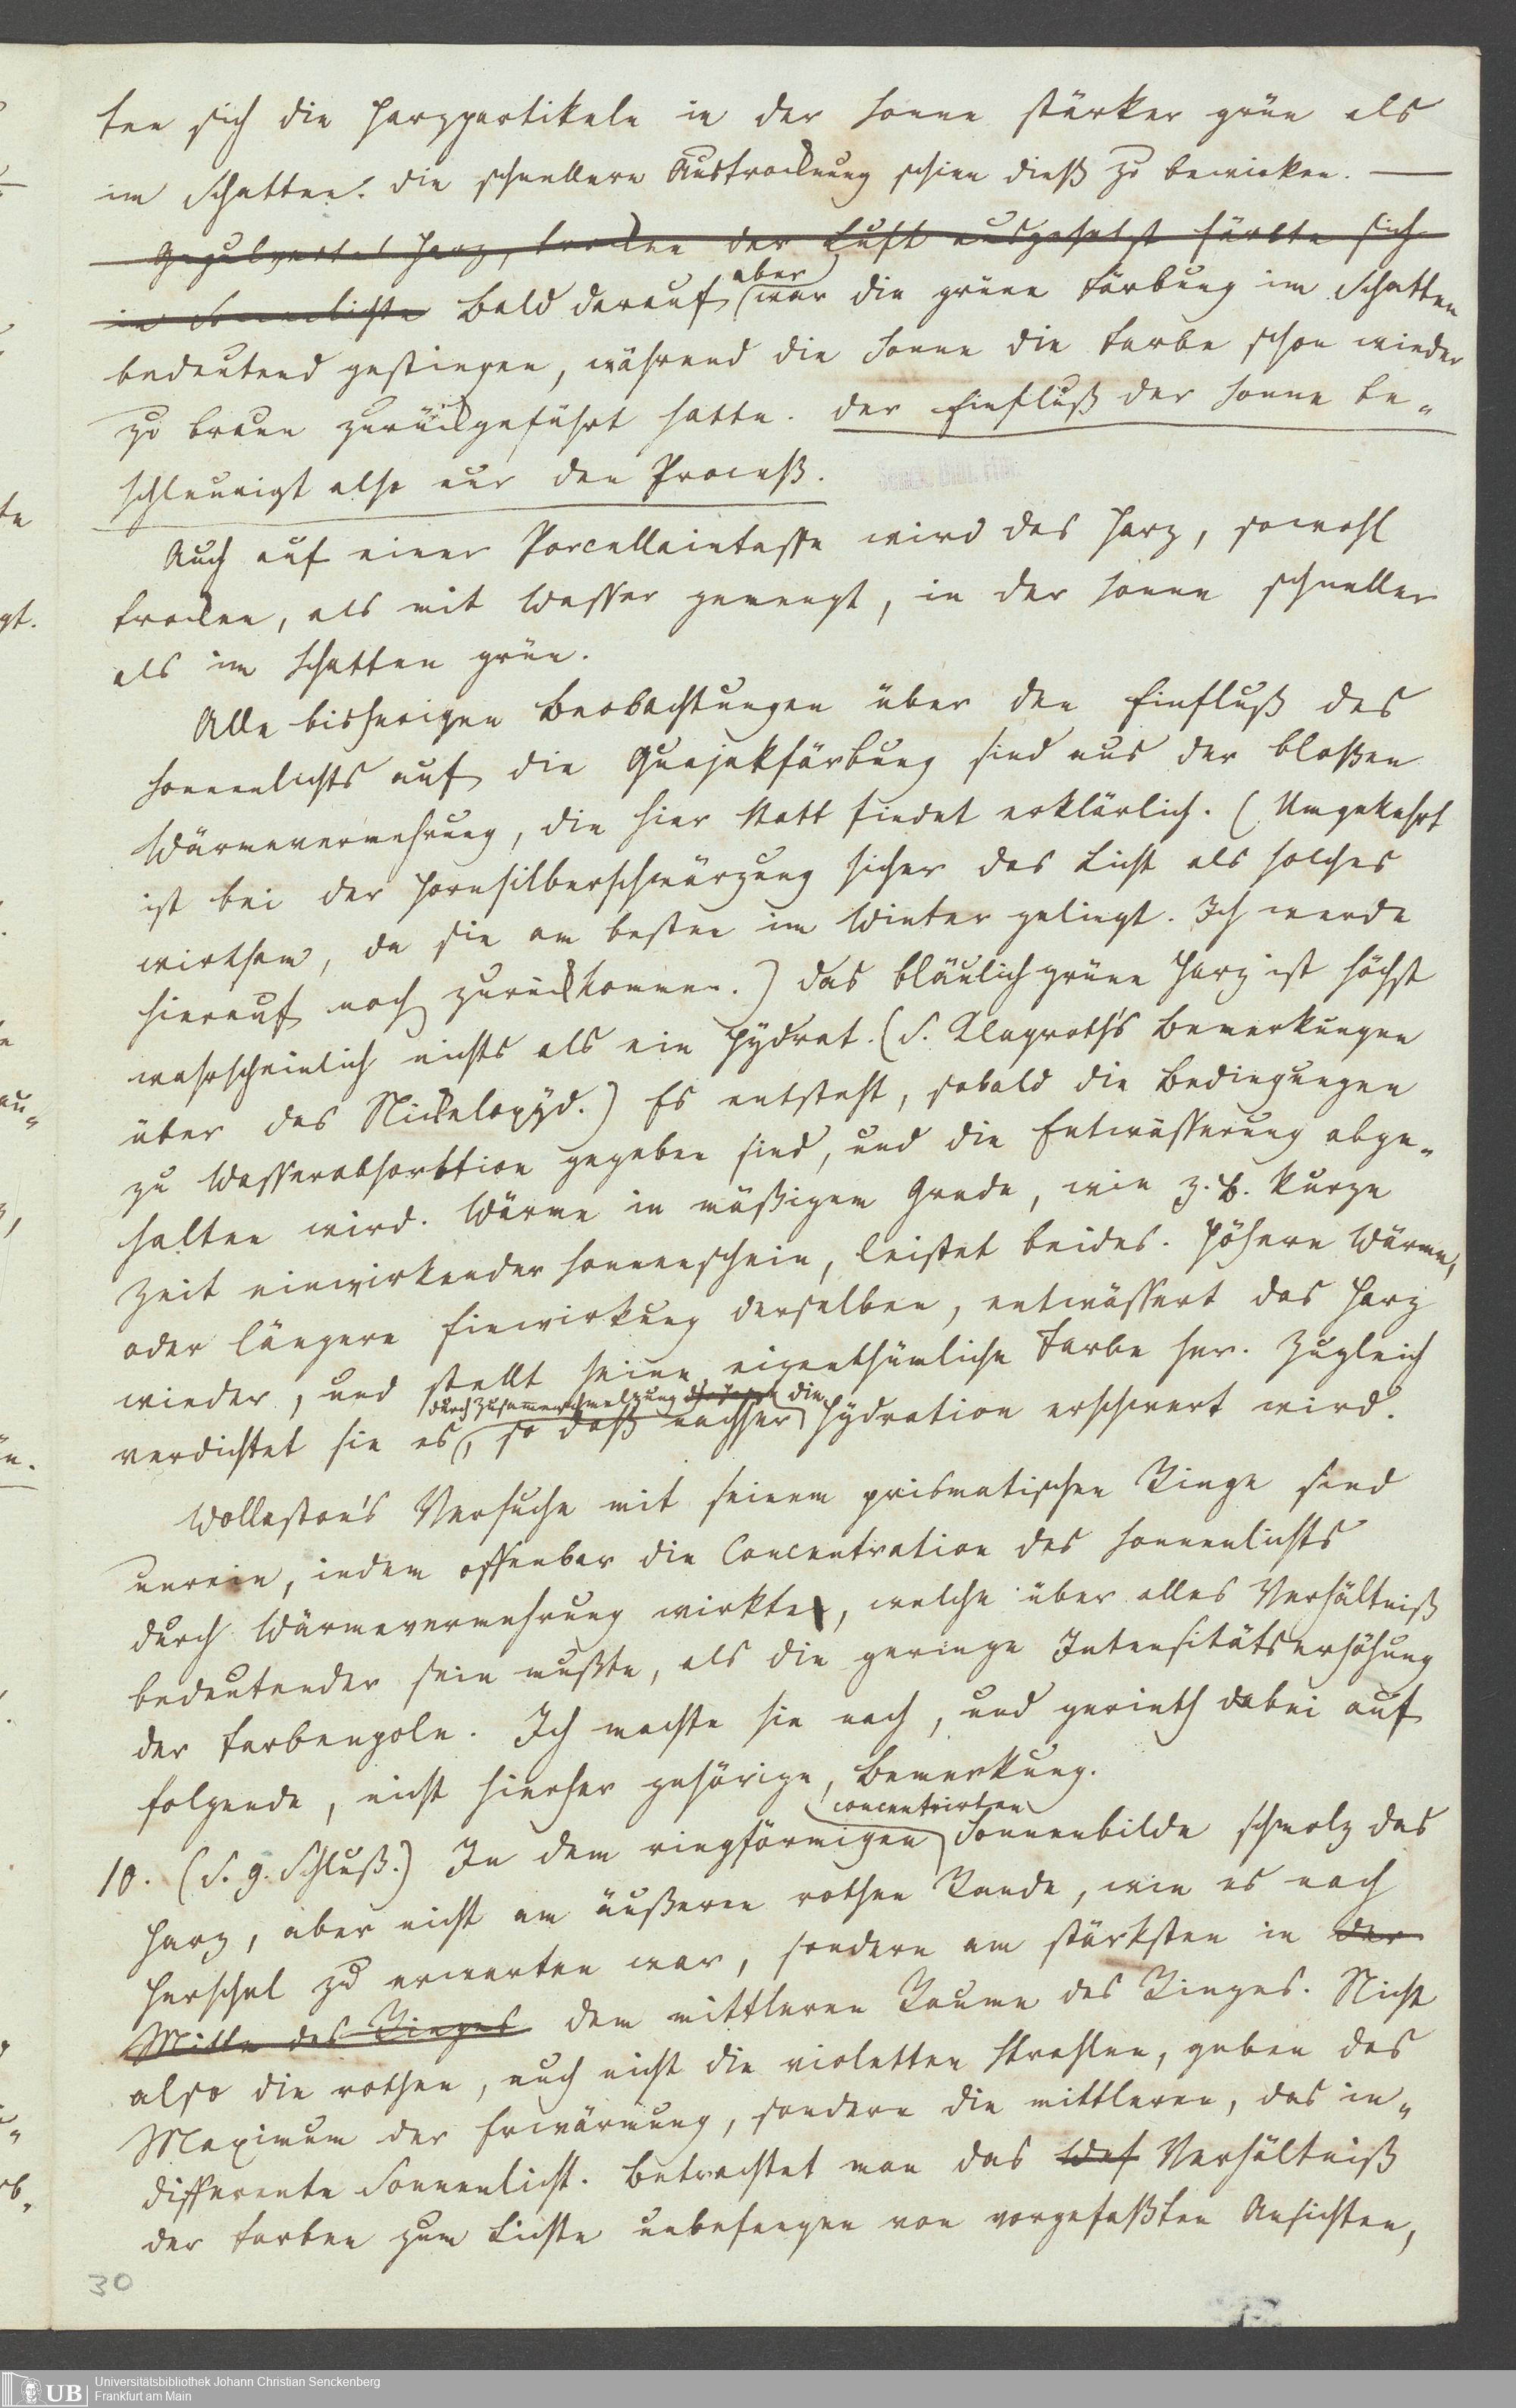 ten sich die Harzpartikeln in der Sonne stärker grün als
im Schatten. Die schnellere Austrocknung schien dieß zu bewirken. —
Gepulvertes Harz, trocken der Luft ausgesetzt färbte sich
im Sonnenlichte Bald darauf aber war die grüne Färbung im Schatten
bedeutend gestiegen, während die Sonne die Farbe schon wieder
zu braun zurückgeführt hatte. Der Einfluß der Sonne be-
schleunigt also nur den Proceß.
Auch auf einer Porcellaintasse wird das Harz, sowohl
trocken, als mit Wasser gemengt, in der Sonne schneller
als im Schatten grün.
Alle bisherigen Beobachtungen über den Einfluß des
Sonnenlichts auf die Guajakfärbung sind aus der bloßen
Wärmevermehrung, die hier Statt findet erklärlich. (Umgekehrt
ist bei der Hornsilberschwärzung sicher das Licht als solches
wirksam, da sie am besten im Winter gelingt. Ich werde
hierauf noch zurückkommen.) Das bläulichgrüne Harz ist höchst
wahrscheinlich nichts als ein Hydrat. (S. Klaproth's Bemerkungen
über das Nickeloxyd.) Es entsteht, sobald die Bedingungen
zu Wasserabsorbtion gegeben sind, und die Entwässerung abge-
halten wird. Wärme in mäßigem Grade, wie z. B. kurze
Zeit einwirkender Sonnenschein, leistet beides. Höhere Wärme,
oder längere Einwirkung derselben, entwässert das Harz
wieder, und stellt seine eigenthümliche Farbe her. Zugleich
durch Zusammenschmelzung die
verdichtet sie es, so daß nachher Hydration erschwert wird.
Wollaston's Versuche mit seinem prismatischen Ringe sind
unrein, indem offenbar die Concentration des Sonnenlichts
durch Wärmevermehrung wirkte, welche über alles Verhältniß
bedeutender sein mußte, als die geringe Intensitätserhöhung
der Farbenpole. Ich machte sie nach, und gerieth dabei auf
folgende, nicht hierher gehörige, Bemerkung.
concentrirten
10. (S. 9. Schluß.) In dem ringförmigen Sonnenbilde schmolz das
Harz, aber nicht am äußeren rothen Rande, wie es nach
Herschel zu erwarten war, sondern am stärksten in der
Mitte des Ringes dem mittleren Raume des Ringes. Nicht
also die rothen, auch nicht die violetten Strahlen, geben das
Maximum der Erwärmung, sondern die mittleren, das in-
differente Sonnenlicht. Betrachtet man das Verhältniß
der Farben zum Lichte unbefangen von vorgefaßten Ansichten,
30
UB Universitätsbibliothek Johann Christian Senckenberg
Frankfurt am Main